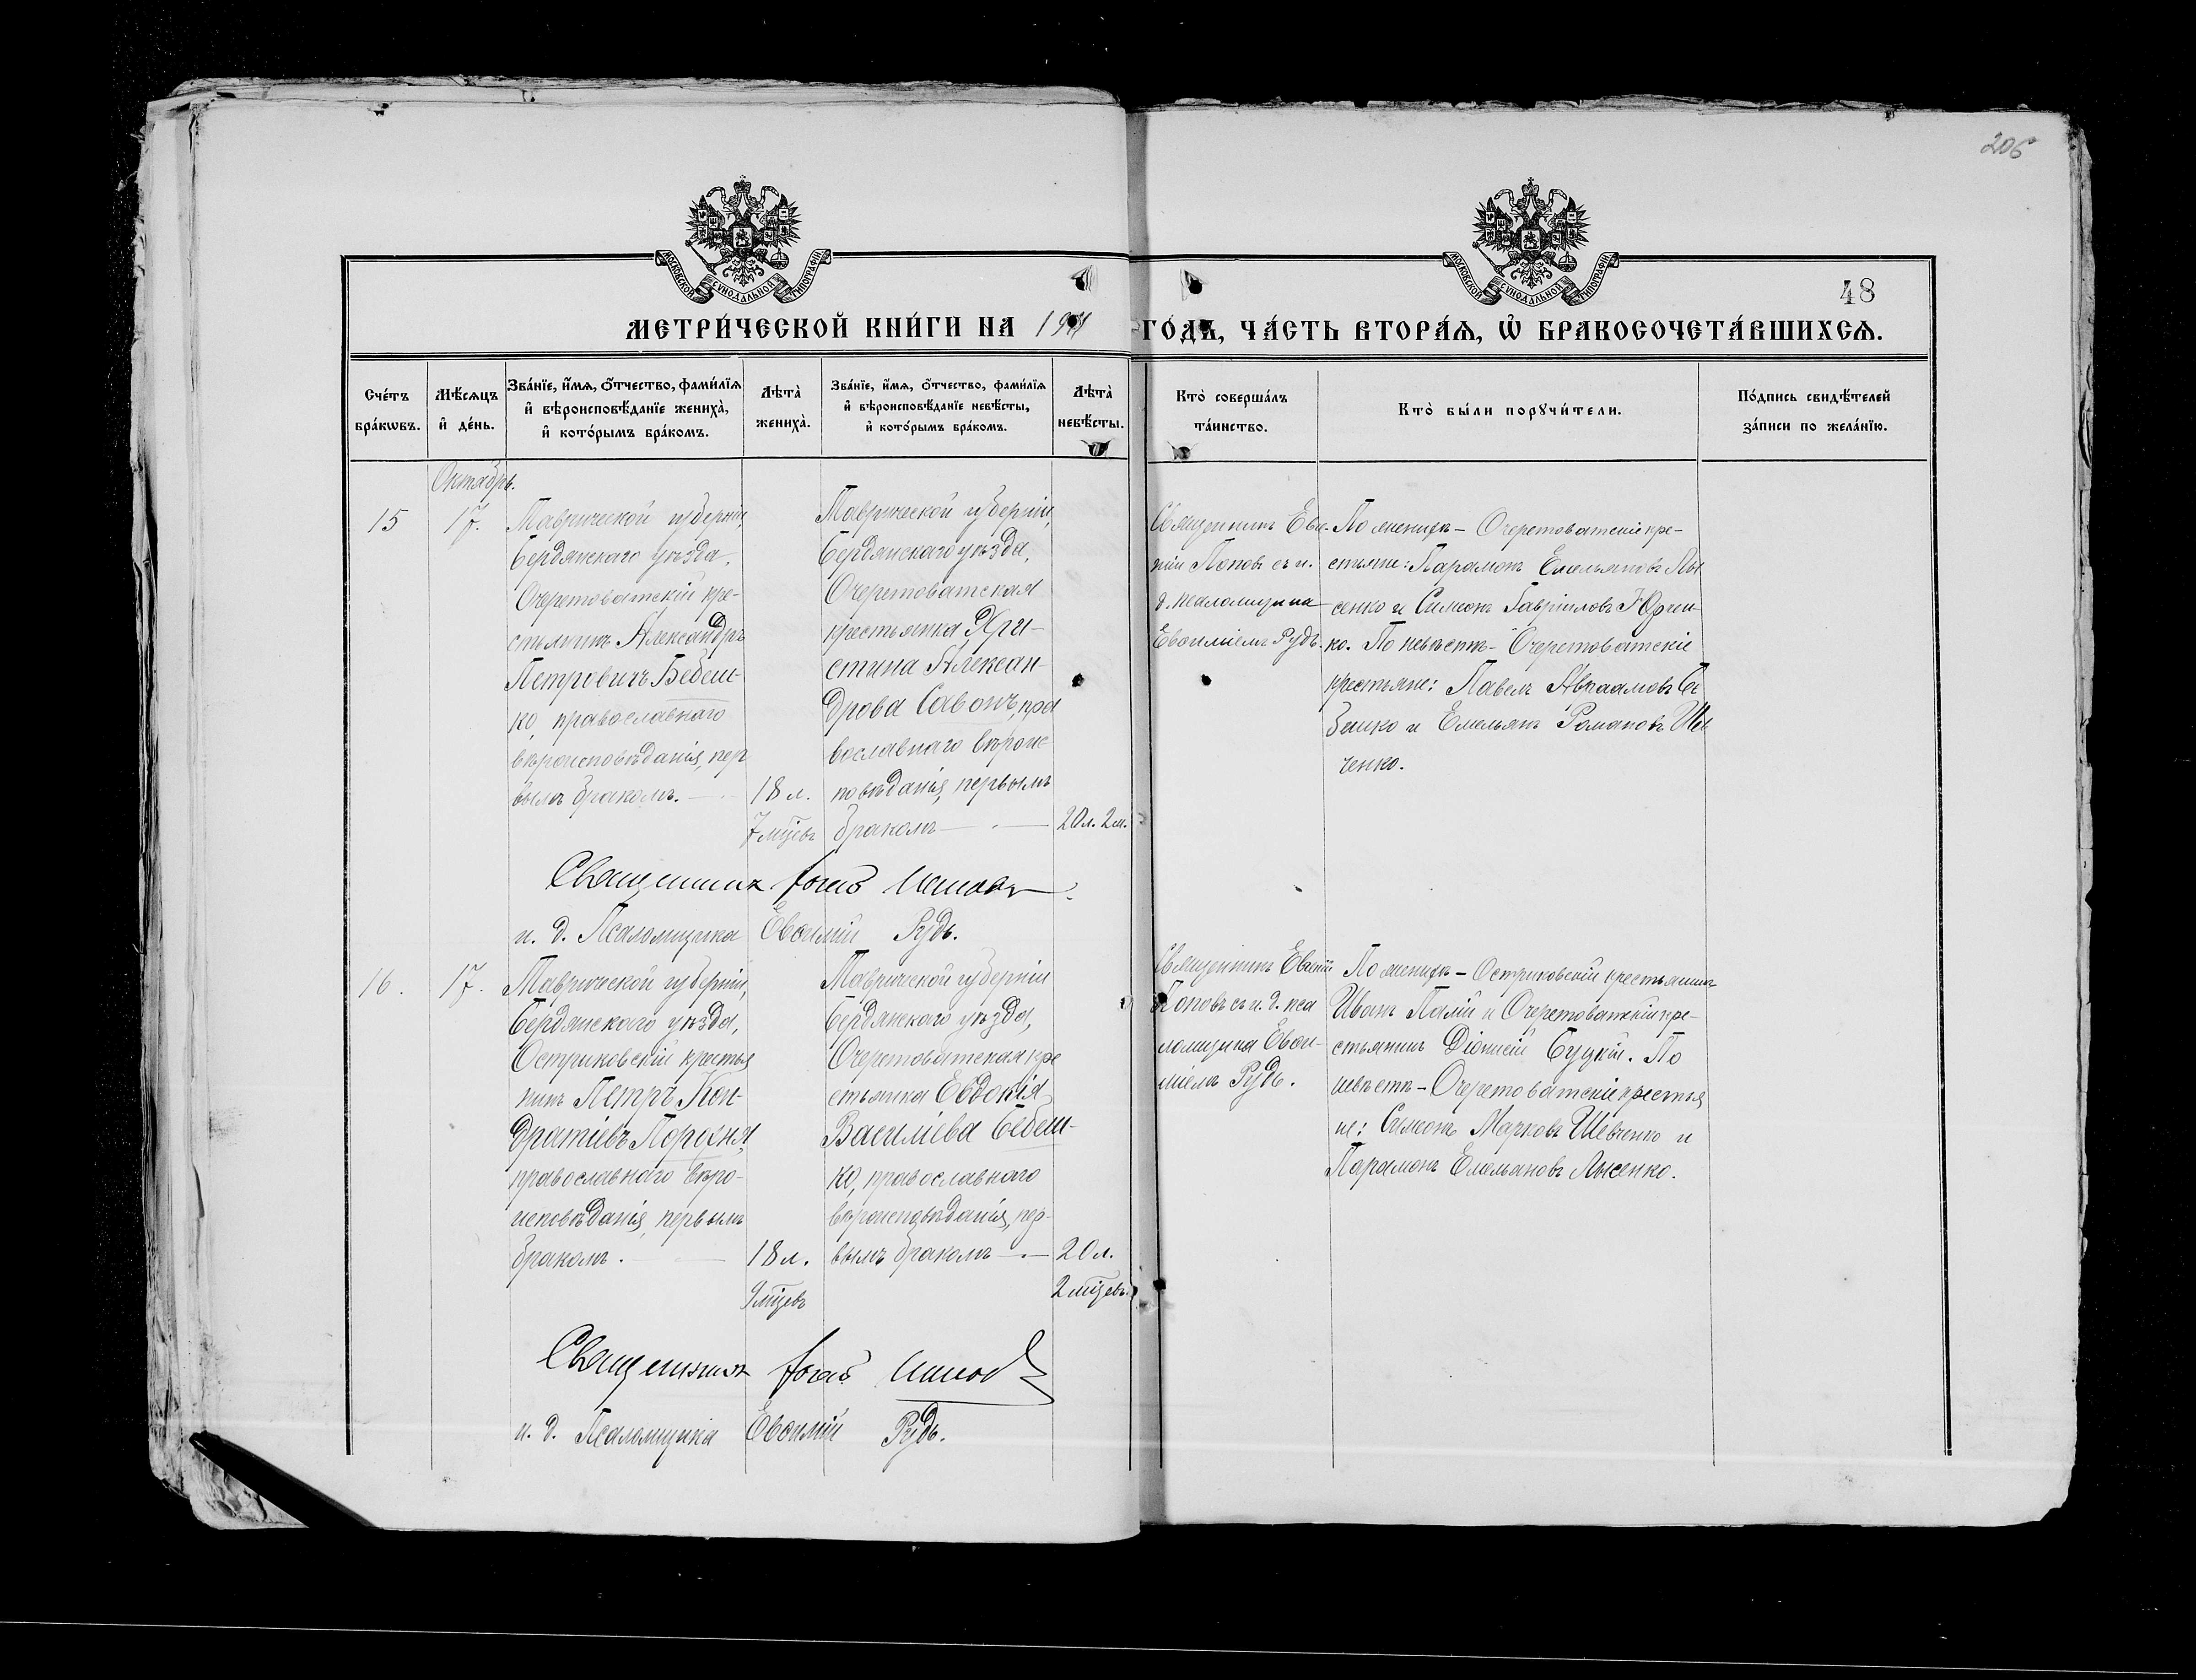 206
МОСКОВСКОЙ СѴНОДАЛЬНОЙ ТИПОГРАФІИ
МОСКОВСКОЙ СѴНОДАЛЬНОЙ ТИПОГРАФІИ
48
МЕТРИ́ЧЕСКОЙ КНИ́ГИ НА
ГО́ДЪ, ЧА́СТЬ ВТОРА́Ѧ, Ѽ БРАКОСОЧЕТА́ВШИХСѦ.
Сче́тъ бра́кωвъ.
Мѣ́сѧцъ и҆ де́нь.
Зва́нїе, и҆́мѧ, ѻ҆́тчество, фами́лїѧ и҆ вѣроисповѣ́данїе жениха̀, и҆ кото́рымъ бра́комъ.
Лѣта̀ жениха̀.
Зва́нїе, и҆́мѧ, ѻ҆́тчество, фами́лїѧ и҆ вѣроисповѣ́данїе невѣ́сты, и҆ кото́рымъ бра́комъ.
Лѣта̀ невѣ́сты.
Кто̀ соверша́лъ та́инство.
Кто̀ бы́ли порꙋчи́тели.
По́дпись свидѣ́телей за́писи по жела́нїю.
Октябрь.
15
17.
Таврической губерніи,
Бердянскаго уѣзда,
Очеретоватскій кре-
стьянинъ Александръ
Петровичъ Бебеш-
ко, православнаго
вѣроисповѣданія, пер
вымъ бракомъ.
18 л.
7 мцевъ
Таврической губерніи,
Бердянскаго уѣзда,
Очеретоватская
крестьянка Хри-
стина Алексан-
дрова Савонъ, пра
вославнаго вѣроис
повѣданія, первымъ
бракомъ
20 л. 2 м.
Священникъ Евг-
ній Поповъ съ и.
д. псаломщика
Евѳиміемъ Рудь.
По женихѣ - Очеретоватскіе кре-
стьяне: Парамонъ Емельяновъ Лы
сенко и Симеонъ Гавріиловъ Юрчен-
ко. По невѣстѣ - Очеретоватскіе
крестьяне: Павелъ Авраамовъ Бе
бешко и Емельянъ Романовъ Ше
ченко.
Священник
и. д. Псаломщика Евѳимій Рудь.
16.
17.
Таврической губерніи,
Бердянскаго уѣзда,
Остриковскій крестья
нинъ Петръ Кон-
дратіевъ Порохня,
православнаго вѣро-
исповѣданія, первымъ
бракомъ.
18 л.
9 мцевъ
Таврической губерніи
Бердянскаго уѣзда,
Очеретоватская кре
стьянка Евдокія
Василіева Бебеш-
ко, православнаго
вѣроисповѣданія, пер-
вымъ бракомъ
20 л.
2 мцевъ.
Священникъ Евгеній
Поповъ съ и. д. пса
ломщика Евѳи-
міемъ Рудь.
По женихѣ - Остриковскій крестьянинъ
Иванъ Палій и Очеретоватскій кре-
стьянинъ Діонисій Буцкій. По
невѣстѣ - Очеретоватскіе крестья
не: Симеонъ Марковъ Шевченко и
Парамонъ Емельяновъ Лысенко.
Священник
и. д. Псаломщика Евѳимій Рудь.